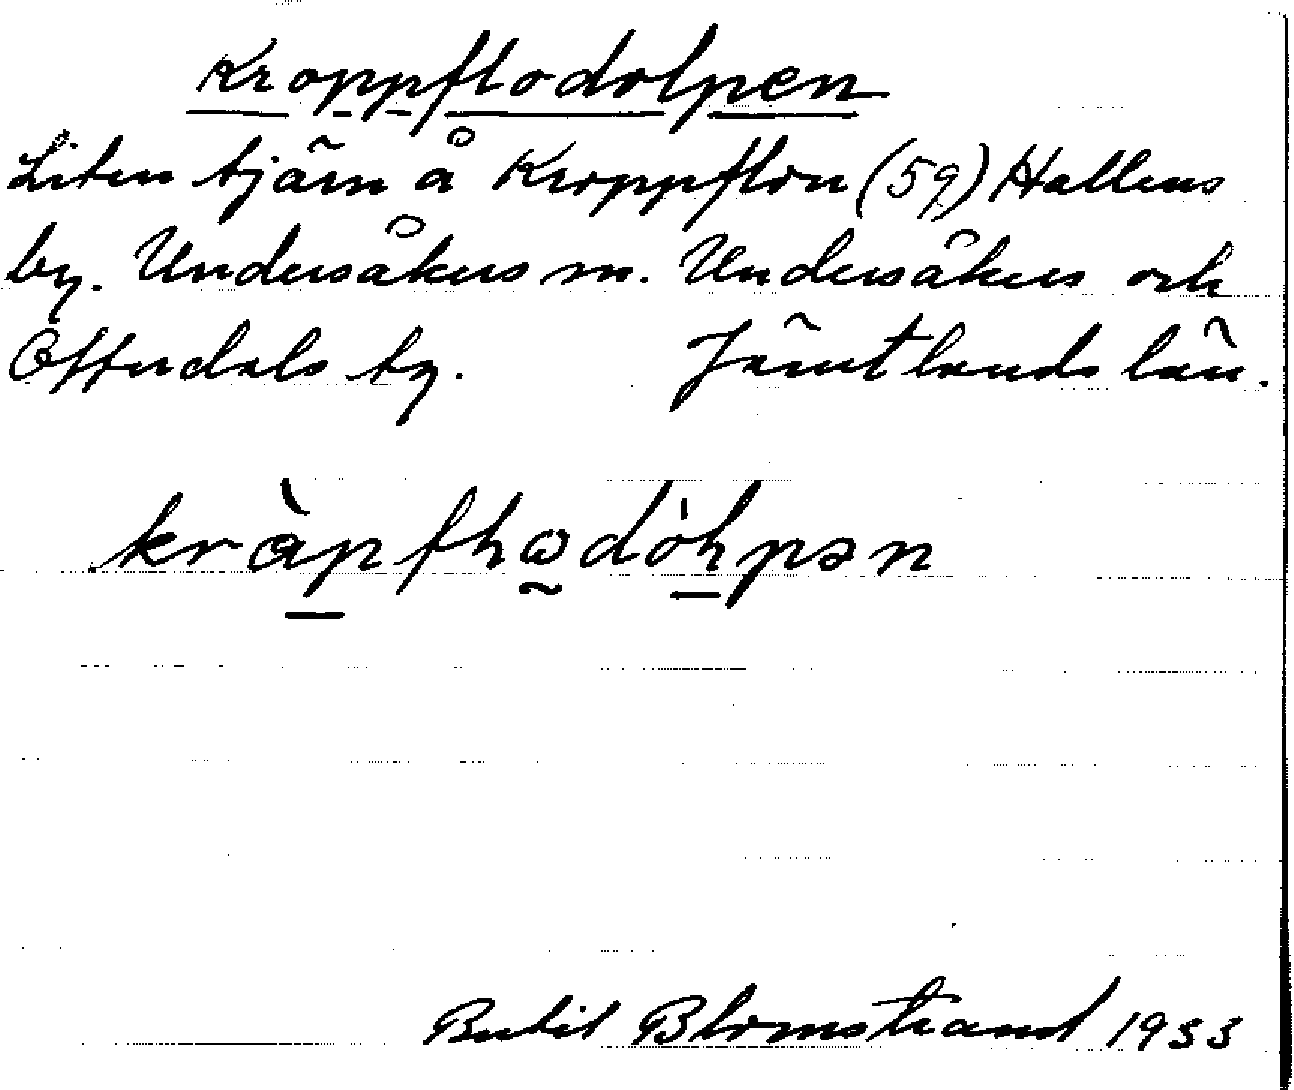 Kroppflodolpen
Liten tjärn å Kroppflon (59) Hallens
by. Undersåkers sn. Undersåkers och
Offerdals tg. Jämtlands län.
kràpfꞎɷdòꞎpən
Bertil Blomstrand 1933